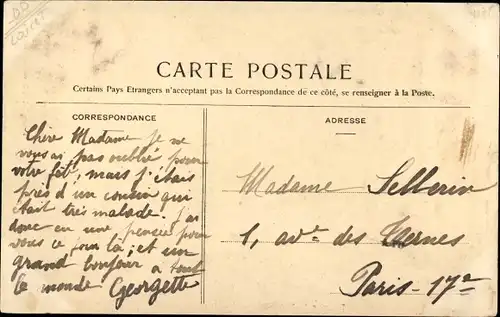 CARTE POSTALE
Certains Pays Etrangers n'acceptant pas la Correspondance de ce côté, se renseigner à la Poste.
CORRESPONDANCE
Chère Madame je ne
vous ai pas oublié pour
votre fête, mais j'étais
près d'un cousin qui
était très malade. J'ai
donc eu une pensée pour
vous ce jour là; et un
grand bonjour à tout
le monde Georgette
ADRESSE
Madame Sellerin
1, ave des Ternes
Paris-17e